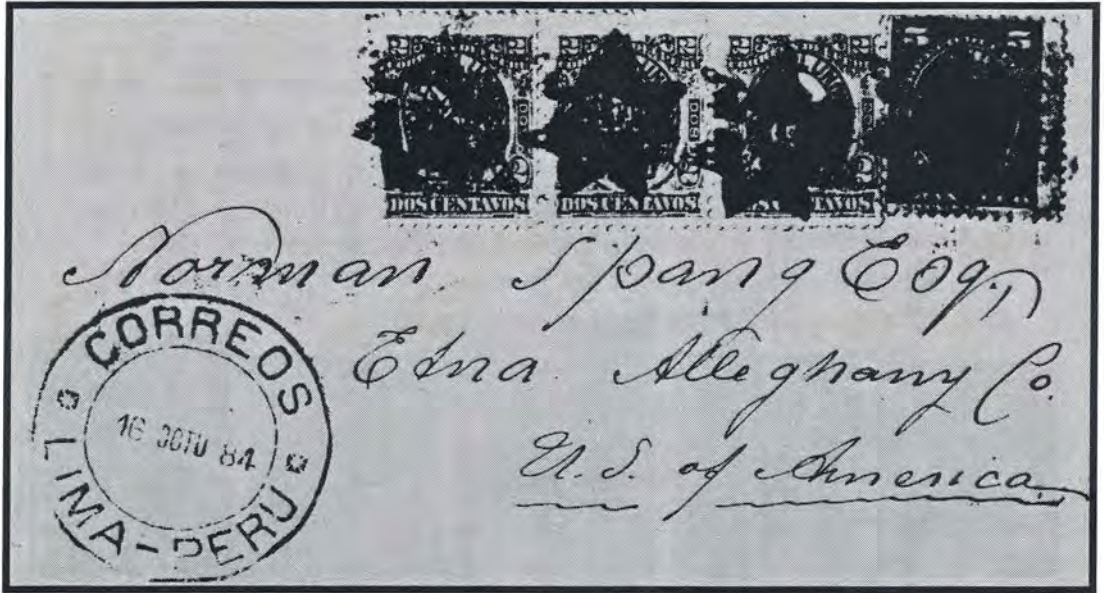 2 2 2 2 2 2 5 5
DOS CENTAVOS DOS CENTAVOS DOS CENTAVOS
Norman Spang Esq.
Etna Alleghany Co.
U.S. of America
CORREOS
16 OCTU 84
LIMA-PERU